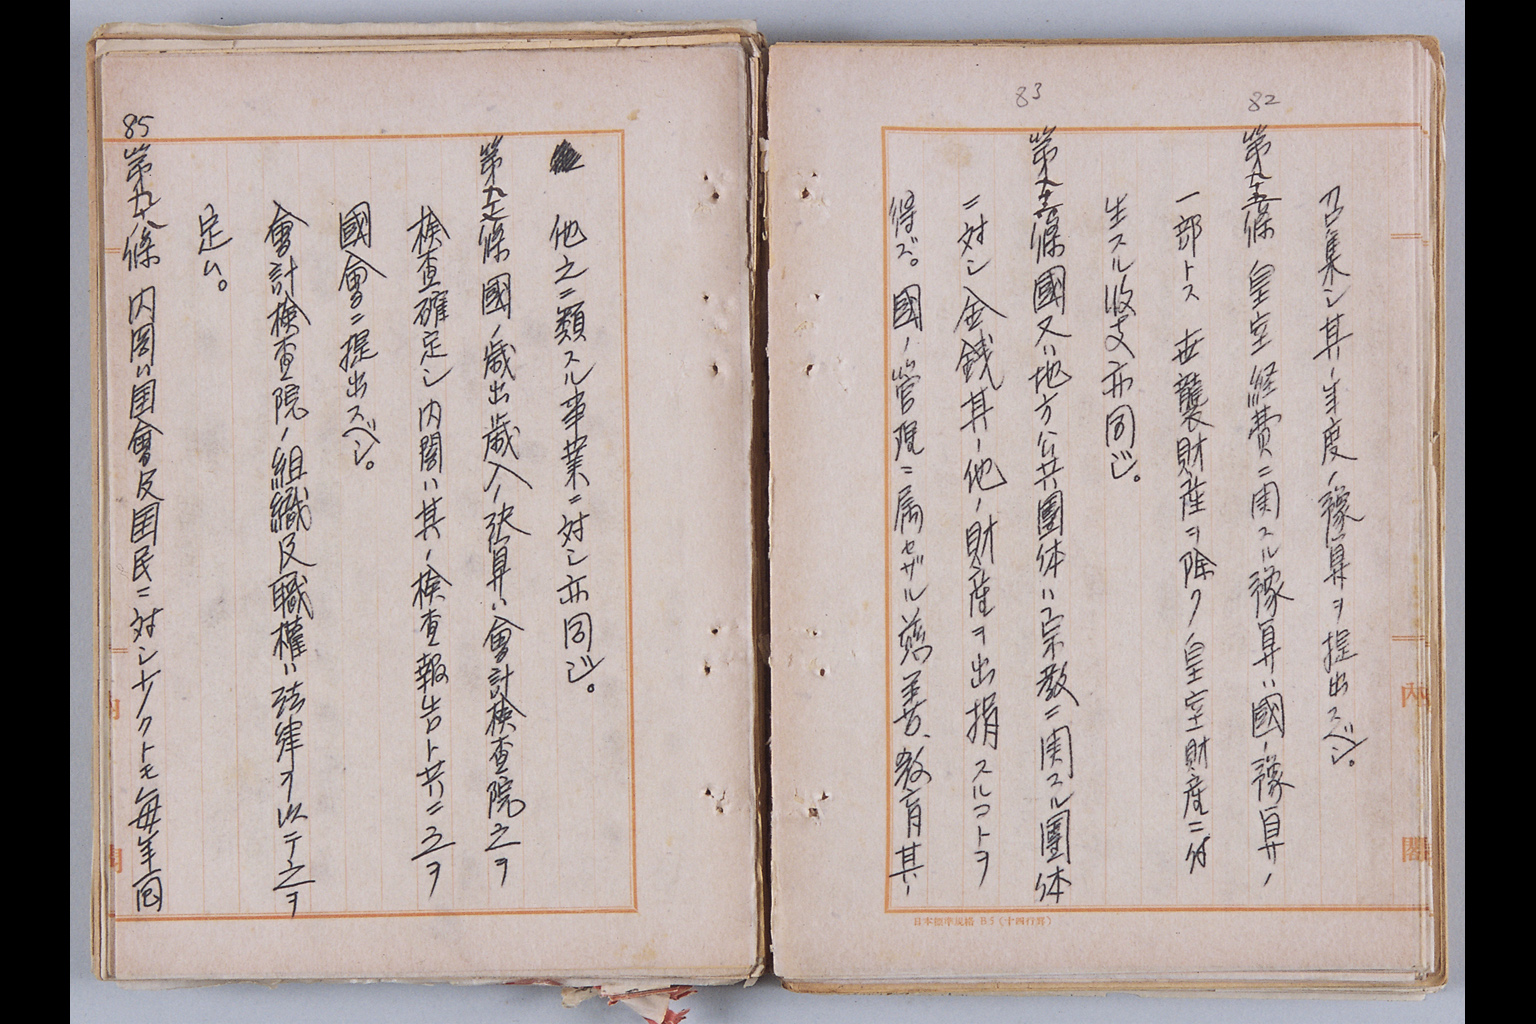 召集シ其ノ年度ノ豫算ヲ提出スベシ。
82
第九十五條 皇室経費ニ関スル豫算ハ國ノ豫算ノ
一部トス 世襲財産ヲ除ク皇室財産ニ付
生スル收支亦同じ。
83
第九十六條 國又ハ地方公共團体ハ宗教ニ関スル團体
ニ対シ金銭其ノ他ノ財産ヲ出捐スルコトヲ
得ズ。國ノ管理ニ属セザル慈善、教育其ノ
日本標準規格 B5(十四行罫)
内閣
他之ニ類スル事業ニ対シ亦同じ。
第九十七條 國ノ歳出歳入ノ決算ハ會計検査院之ヲ
検査確定シ内閣ハ其ノ検査報告ト共ニ之ヲ
國會ニ提出スベシ。
會計検査院ノ組織及職權ハ法律ヲ以テ之ヲ
定ム。
85
第九十八條 内閣ハ国會及国民ニ対シ少クトモ毎年一回
内閣